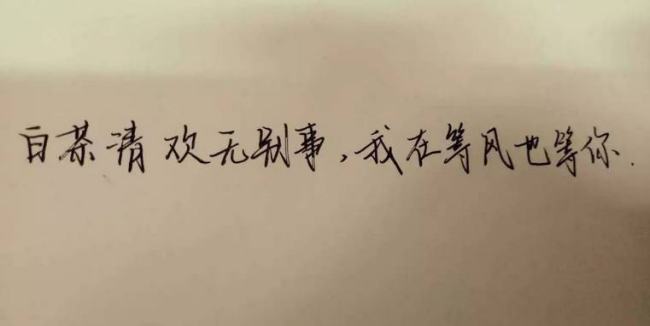 白茶清欢无别事,我在等风也等你.